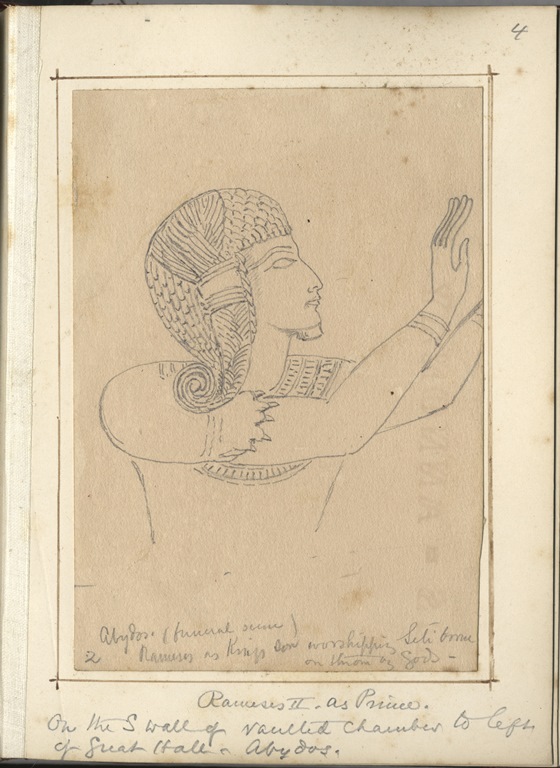 4
Abydos. (funeral scene)
2 Rameses as Kings son worshipping Seti borne
on throne by Gods -
Rameses II. as Prince.
On the S wall of vaulted chamber to left
of Great Hall - Abydos.